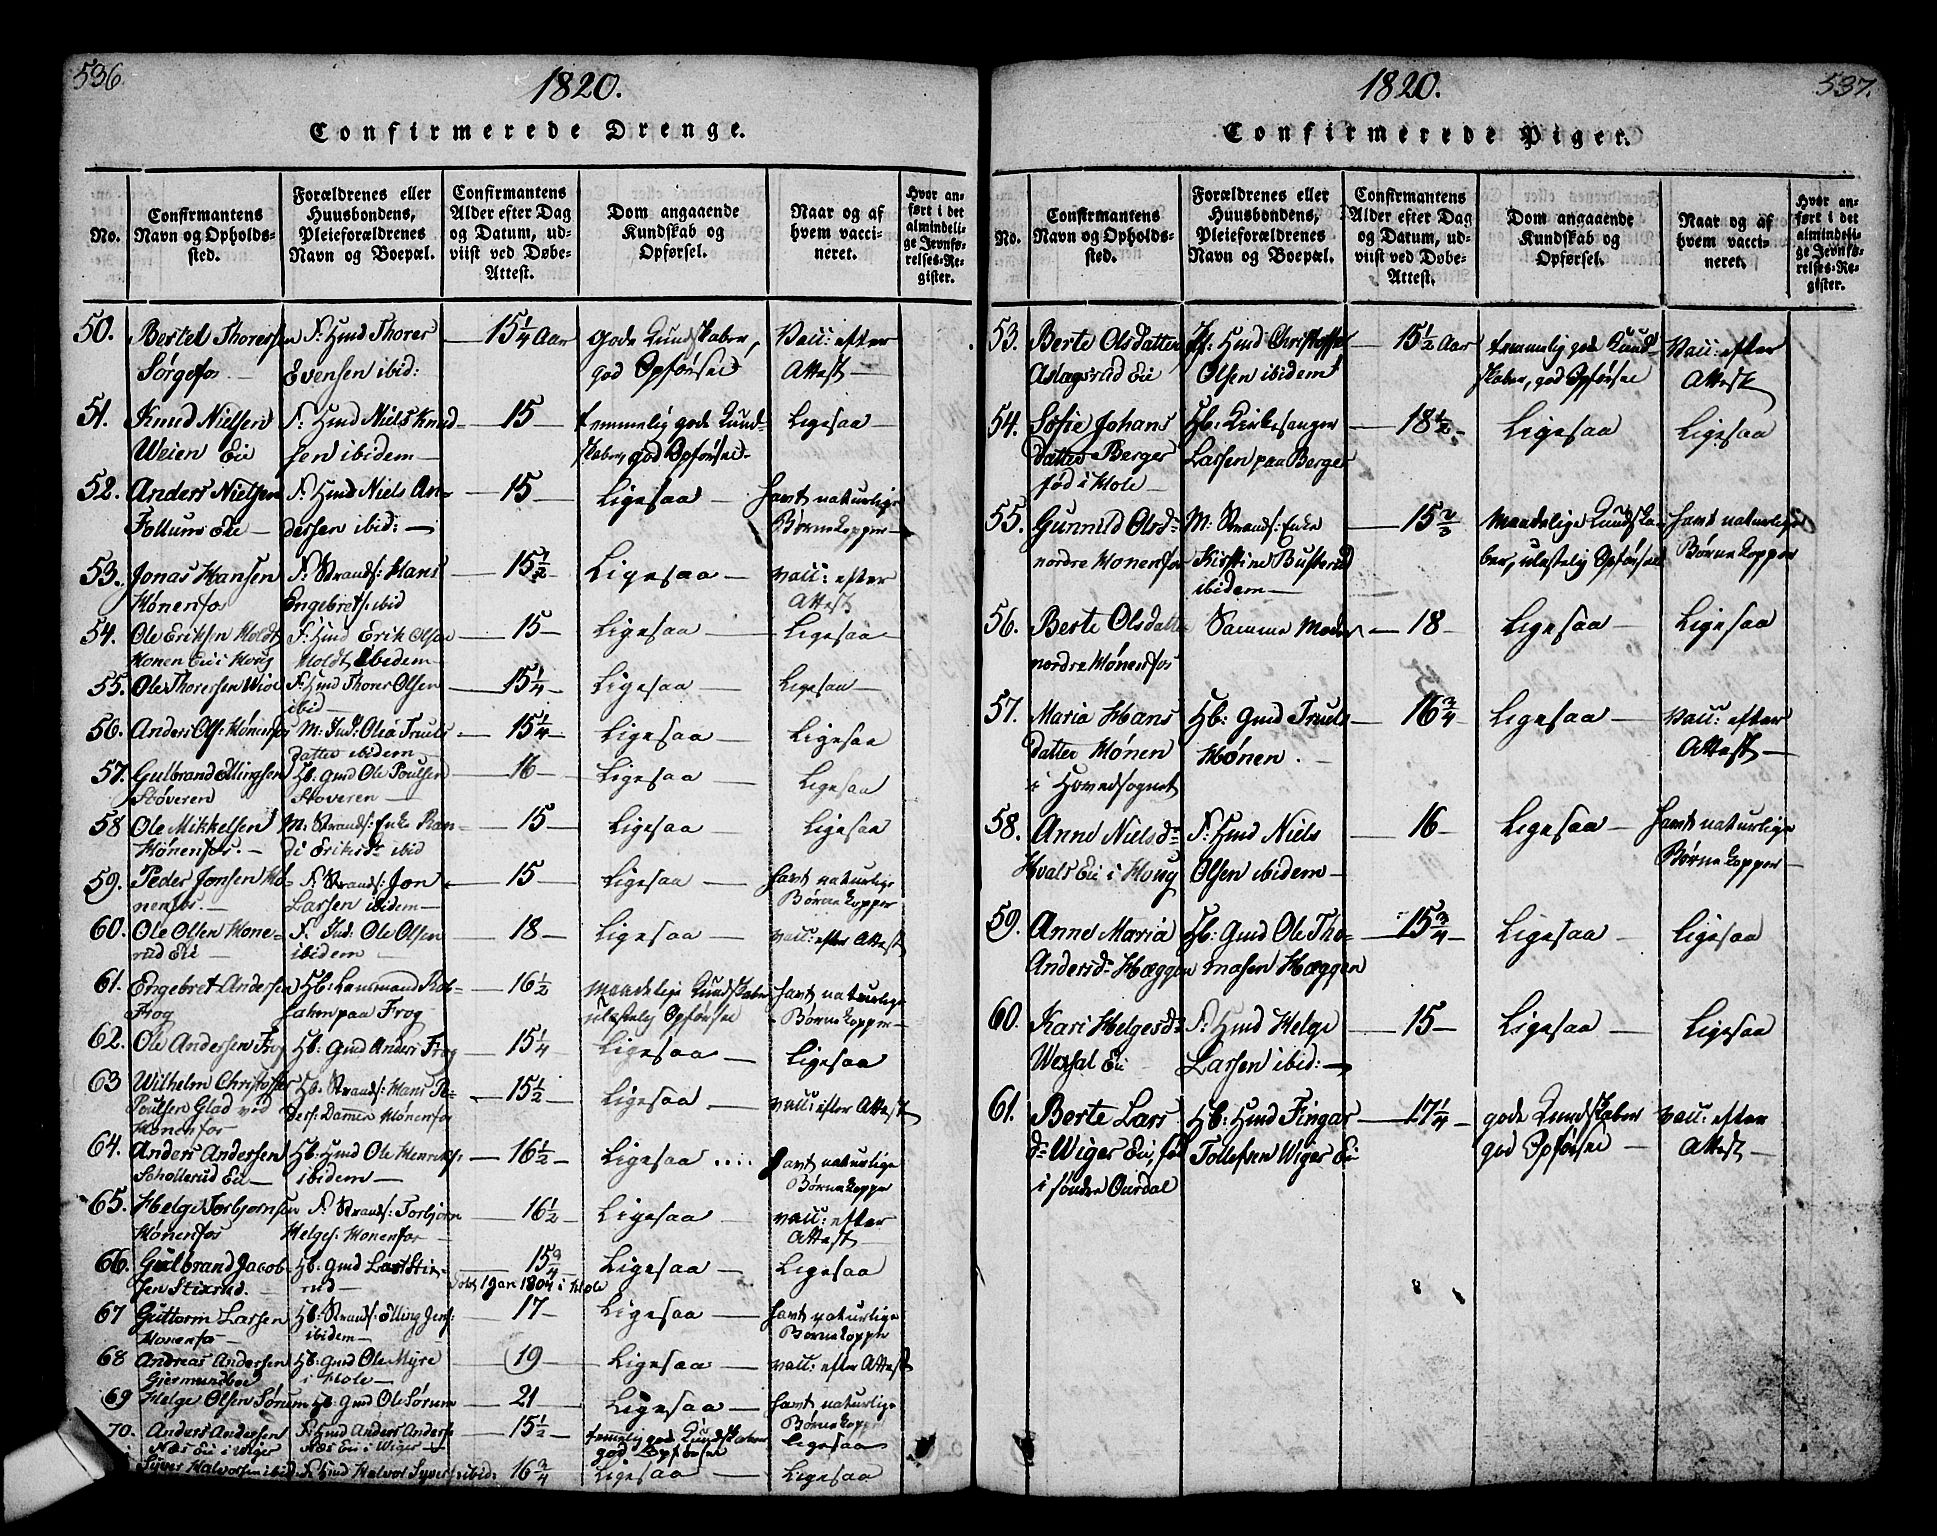 536.
1820.
Confirmerede Drenge.
No.
Confirmantens Navn og Opholdssted.
Forældrenes eller Huusbondens, Pleieforældrenes Navn og Boepæl.
Confirmantens Alder efter Dag og Datum, udviist ved Døbe-Attest.
Dom angaaende Kundskab og Opførsel.
Naar og af hvem vaccineret.
Hvor anført i det almindelige Jevnførelses-Register.
50. Bertel Thoresen F: Hmd Thorer 15 1/4 Aar gode Kundskaber, Vacc: efter
Sørgefos Evensen ibid: god Opførsel Attest
51. Knud Nielsen F: Hmd Niels Knud- 15 temmelig gode Kund- Ligesaa
Weien Eie sen ibidem skaber, god Opførsel
52. Anders Nielsen F: Hmd Niels An- 15 Ligesaa havt naturlige
Follum Eie dersen ibid: Børnekopper
53. Jonas Hansen F: Strands: Hans 15 1/2 Ligesaa vacc: efter
Hønenfos Engebrets: ibid Attest
54. Ole Eriksen Holdt F: Hmd Erik Olsen 15 Ligesaa Ligesaa
Honen Eie i Houg Holdt ibidem
55. Ole Thoresen F: Hmd Thorer Olsen 15 1/4 Ligesaa Ligesaa
ibid
56. Anders Ols: Hønenfos M: Ind: Olea Truls 15 1/4 Ligesaa Ligesaa
datter ibidem
57. Gulbrand Ellingsen Hb: Gmd Ole Poulsen 16 Ligesaa Ligesaa
Støveren Støveren
58 Ole Mikkelsen M: Strands: Enke Ran- 15 Ligesaa Ligesaa
Hønenfos. di Eriksdr ibid
59. Peder Jonsen Hø- F: Strands: Jon 15 Ligesaa havt naturlige
nenfos. Larsen ibidem Børnekopper
60. Ole Olsen Hone- F: Ind: Ole Olsen 18 Ligesaa vacc: efter Attest
rud Eie ibidem
61. Engebret Andersen Hb: 16 1/2 maadelige Kundskaber havt naturlige
Frog paa Frog ulastelig Opførsel Børnekopper
62. Ole Andersen Frog Hb: Gmd Anders Frog 15 1/4 Ligesaa Ligesaa
63 Wilhelm Christoffer Hb: Strands: Hans Pe- 15 1/2 Ligesaa vacc: efter Attest
Poulsen Glad ved ders: Damen Hønenfos
Hønenfos
64. Anders Andersen Hb: Hmd Ole Henriks: 16 1/2 Ligesaa .... havt naturlige
Schollerud Eie ibidem Børnekopper
65. Helge Torbjornsen F: Strands: Torbjørn 16 1/2 Ligesaa vacc: efter
Hønenfos Helges: Hønenfos Attest
66. Gulbrand Jacob- Hb: Gmd Lars Stix- 15 3/4 Ligesaa Ligesaa
sen Stixrud. rud
døbt 19 1804 i Hole
67 Guttorm Larsen Hb: Strands: Elling Jens: 17 Ligesaa havt naturlige
Hønenfos ibidem Børnekopper
68 Andreas Andersen Hb: Gmd Ole Myre 19 Ligesaa vacc: efter Attest
Gjermundboe i Hole
69 Helge Olsen Sørum Hb: Gmd Ole Sørum 21 Ligesaa havt naturlige
Børnekopper
70. Anders Andersen F: Hmd Anders Anders: 15 1/2 temmelig gode Kundskaber Ligesaa
Næs Eie i Wiger Næs Eie i Wiger god Opførsel
Syver Halvorsen ibid F: Hmd Halvor Syvers: ibid: 16 3/4 Ligesaa Ligesaa
1820.
537.
Confirmerede Piger.
No.
Confirmantens Navn og Opholdssted.
Forældrenes eller Huusbondens, Pleieforældrenes Navn og Boepæl.
Confirmantens Alder efter Dag og Datum, udviist ved Døbe-Attest.
Dom angaaende Kundskab og Opførsel.
Naar og af hvem vaccineret.
Hvor anført i det almindelige Jevnførelses-Register.
53. Berte Olsdatter Hmd Christoffer 15 1/2 Aar temmelig gode Kund- Vacc: efter
Aslagsrud Eie Olsen ibidem skaber, god Opførsel Attest
54. Sofie Johans Hb: Kirkesanger 18 1/2 Ligesaa Ligesaa
datter Berger Larsen paa Berger
fød i Hole
55. Gunnild Olsdr M: Strands: Enke 15 2/3 Maadelige Kundska- havt naturlige
nordre Honenfos Kirstine Busterud ber, ulastelig Opførsel Børnekopper
ibidem
56. Berte Olsdatter Samme Moder 18 Ligesaa Ligesaa
nordre Hønenfos
57. Maria Hans Hb: Gmd Truls 16 3/4 Ligesaa vacc: efter
datter Hønen Hønen Attest
i Hovedsognet
58. Anne Nielsdr F: Hmd Niels 16 Ligesaa havt naturlige
Hvals Eie i Houg Olsen ibidem Børnekopper
59. Anne Maria Hb: Gmd Ole Tho- 15 3/4 Ligesaa Ligesaa
Andersdr Hæggen masen Hæggen
60. Kari Helgesdr F: Hmd Helge 15 Ligesaa Ligesaa
Wexal Eie Larsen ibid:
61. Berte Lars Hb: Hmd Fingar 17 1/4 gode Kundskaber vacc: efter
dr Wiger Eie, fød Tollefsen Wiger Eie god Opførsel Attest
i søndre Ourdal